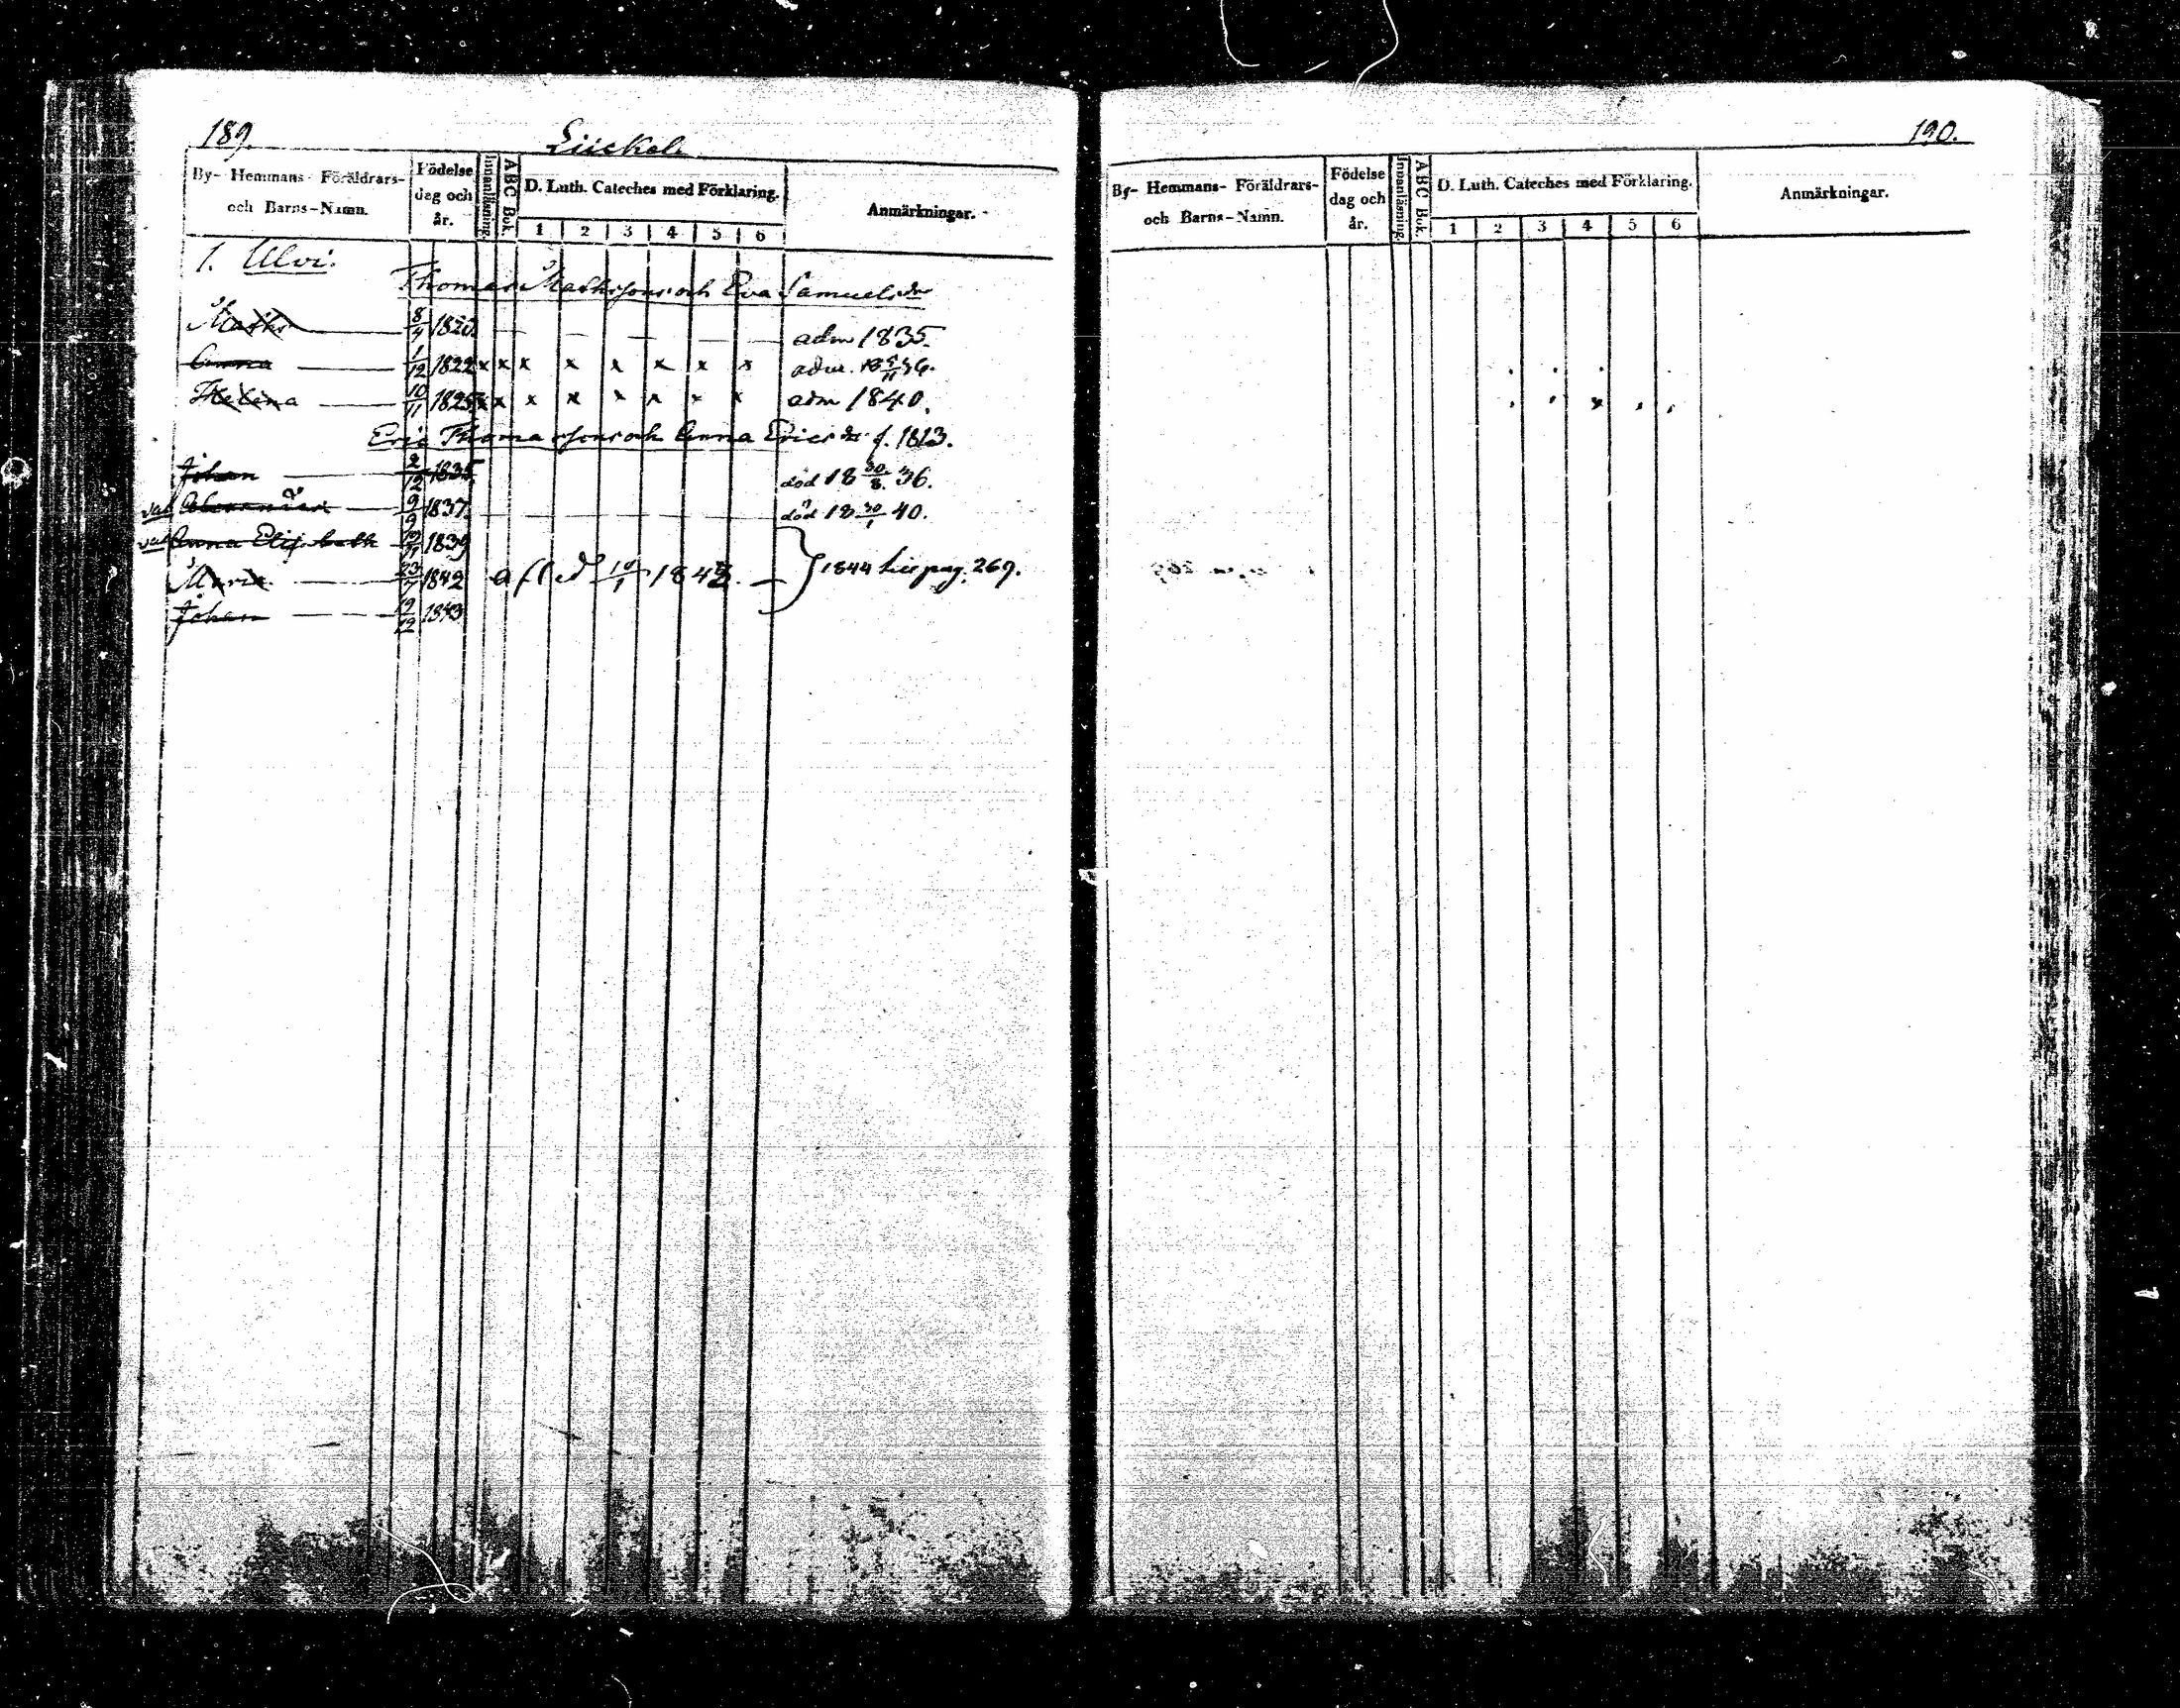 189.
Liickala
By- Hemmans- Föräldrars- och Barns-Namn. Födelse dag och år. Innanläsning. ABC Bok. D. Luth. Cateches med Förklaring. Anmärkningar.
1 2 3 4 5 6
1. Ulvi.
Thomas Mathsson och Eva Samuelsdr
Maths 8/4 1820 adm 1835.
Anna 1/12 1822 x x x x x x x x adm. 18 5/11 36.
Helena 10/11 1825 x x x x x x x x adm 1840.
Eric Thomasson och Anna Ericsdr f. 1813.
Johan 2/12 1835 död 18 30/8. 36.
vac 9/9 1837. död 18 30/1 40.
vac Anna Elisabeth 1839
Maria 23/7 1842 afled 10/1 1843 } 1844 hic pag. 269.
Johan 19/12 1843
190.
By- Hemmans- Föräldrars- och Barns-Namn. Födelse dag och år. Innanläsning. ABC Bok. D. Luth. Cateches med Förklaring. Anmärkningar.
1 2 3 4 5 6